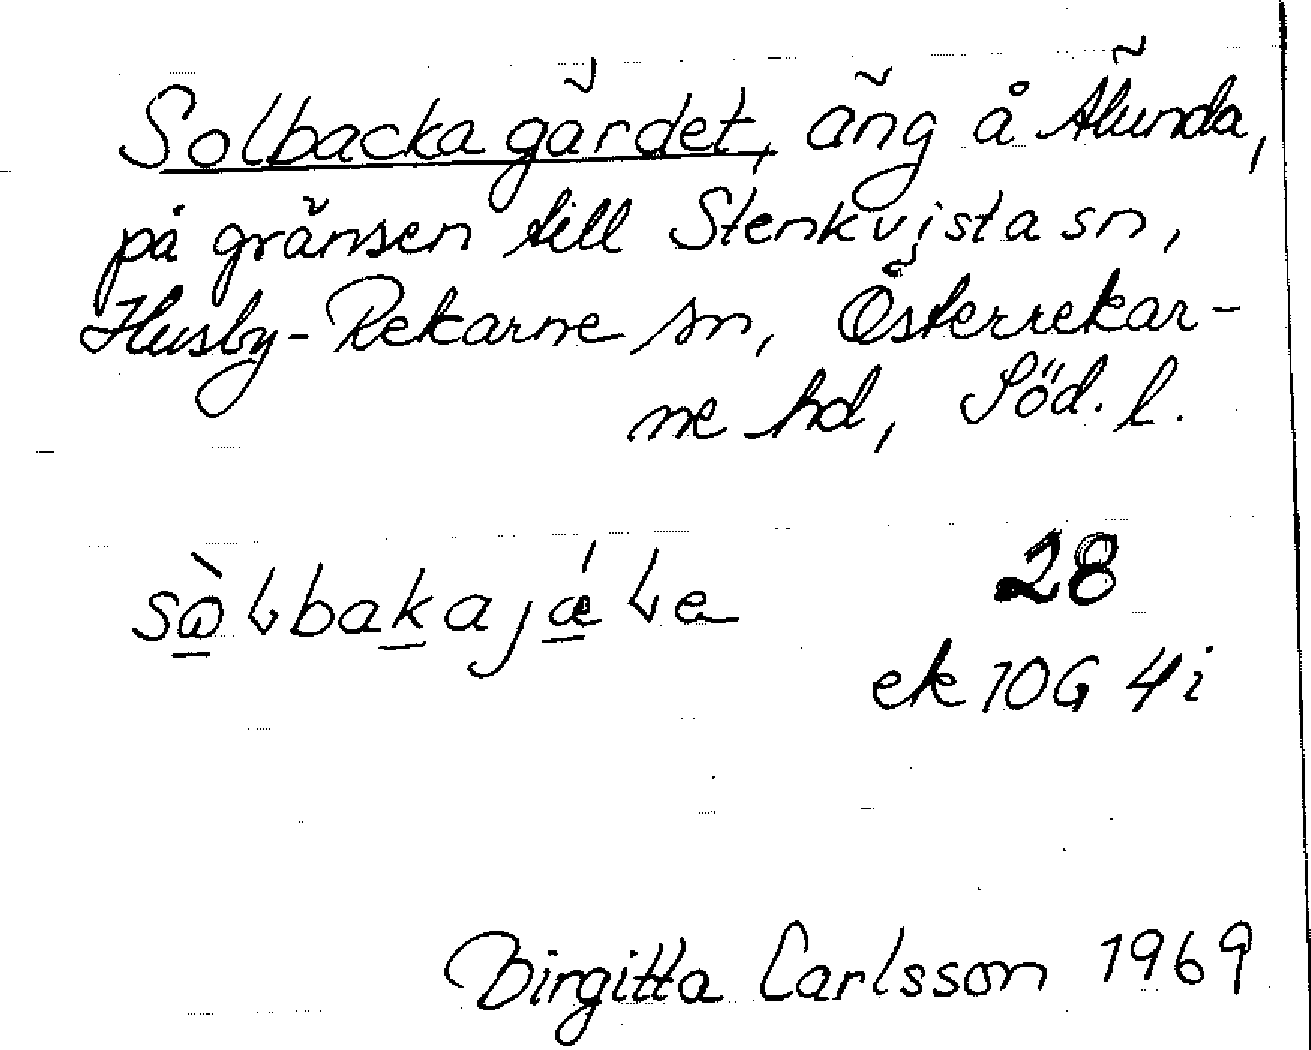 Solbackagärdet, äng å Älunda,
på gränsen till Stenkvista sn,
Husby-Rekarne sn, Österrekar-
ne hd, Söd. l.
28
ek 10G 4i
Birgitta Carlsson 1969